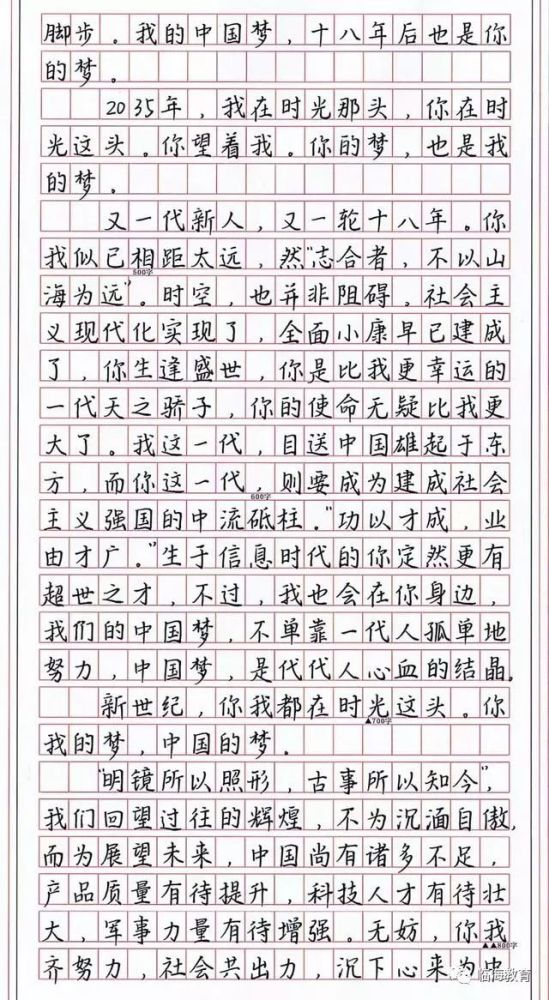 脚步。我的中国梦,十八年后也是你
的梦。
2035年,我在时光那头,你在时
光这头。你望着我。你的梦,也是我
的梦。
又一代新人,又一轮十八年。你
我似已相距太远,然“志合者,不以山
500字
海为远”。时空,也并非阻碍,社会主
义现代化实现了,全面小康早已建成
了,你生逢盛世,你是比我更幸运的
一代天之骄子,你的使命无疑比我更
大了。我这一代,目送中国雄起于东
方,而你这一代,则要成为建成社会
600字
主义强国的中流砥柱。“功以才成,业
由才广。”生于信息时代的你定然更有
超世之才,不过,我也会在你身边,
我们的中国梦,不单靠一代人孤单地
努力,中国梦,是代代人心血的结晶。
新世纪,你我都在时光这头。你
▲700字
我的梦,中国的梦。
“明镜所以照形,古事所以知今”,
我们回望过往的辉煌,不为沉湎自傲,
而为展望未来,中国尚有诸多不足,
产品质量有待提升,科技人才有待壮
大,军事力量有待增强。无妨,你我
▲▲800字
齐努力,社会共出力,沉下心来为中
临海教育